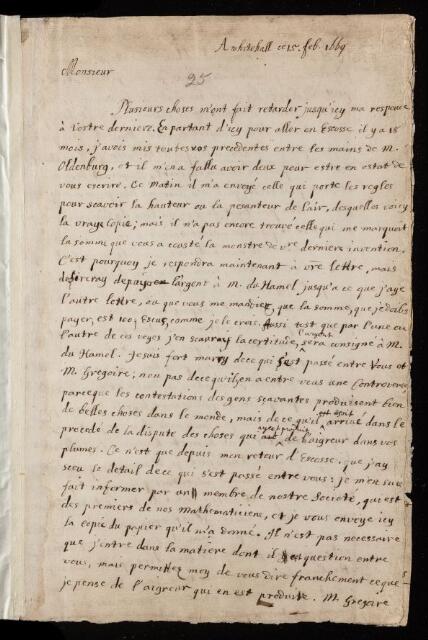 A whitehall ce 15. feb. 1669
Monsieur
25
Plusieurs choses m'ont fait retarder jusqu'icy ma response
à Vostre derniere. En partant d'icy pour aller en Escosse il y a 18
mois, j'avois mis toutes vos precedentes entre les mains de M.
Oldenburg, et il m'en a fallu avoir deux pour estre en estat de
vous escrire. Ce matin il m'a envoyé celle qui porte les regles
pour scavoir la hauteur ou la pesanteur de l'air, desquelles voicy
la vraye Copie; mais il n'a pas encore trouvé celle qui me marquoit
la somme que vous a cousté la monstre de vre derniere invention.
C'est pourquoy je respondra maintenant à vre lettre, mais
differeray de payer l'argent à M. du Hamel jusqu'a ce que j'aye
l'autre lettre, ou que vous me mandiez, que la somme, que je dois
payer, est 100 Escus, comme je le crois. Aussi tost que par l'une ou
l'autre de ces voyes j'en scauray la certitude, l'argent sera consigné à M.
du Hamel. Je suis fort marry de ce qui s'est passé entre Vous et
M. Gregoire; non pas de ce qu'il y en a entre vous une Controverse
parce que les contestations des gens sçavants produisent bien
de belles choses dans le monde, mais de ce qu'il est arrivé dans le
procedé de la dispute des choses qui de l'aigreur dans vos
plumes. Ce n'est que depuis mon retour d'Escosse, que j'ay
sceu le detail de ce qui s'est passé entre vous: je m'en suis
fait informer par un membre de nostre Societé, qui est
des premiers de nos Mathematiciens, et je vous envoye icy
la copie du papier qu'il m'a donné. Il n'est pas necessaire
que j'entre dans la matiere dont il est question entre
vous, mais permettez moy de vous dire franchement ce que
je pense de l'aigreur qui en est produite. M. Gregoire